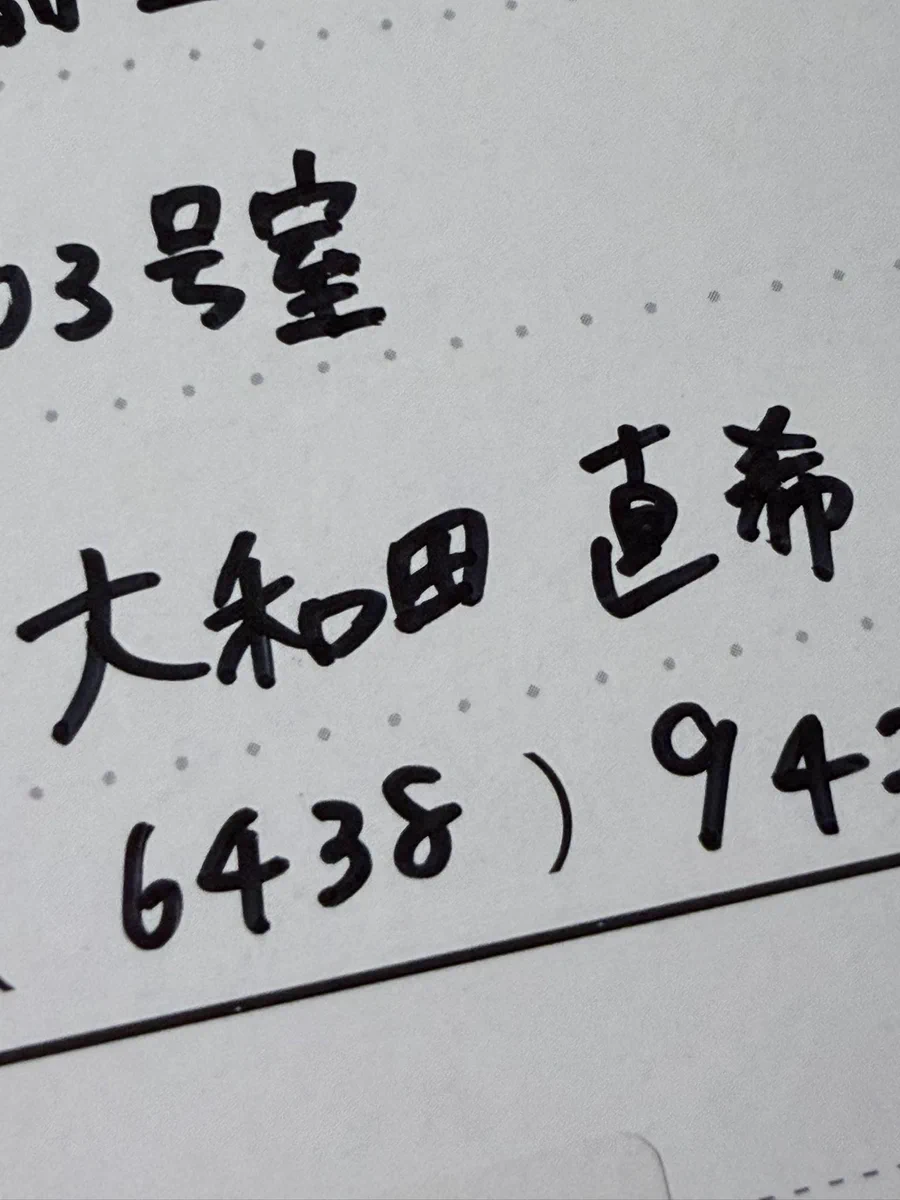 03号室
大和田 直希
6438 ) 94